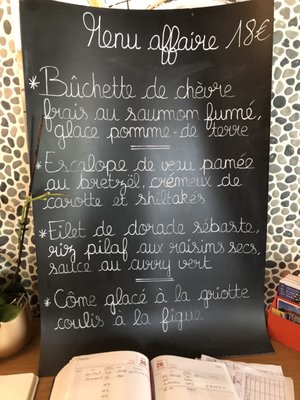 Menu affaire 18€
*Bûchette de chèvre
frais au saumon fumé,
glace pomme-de terre
*Escalope de veau panée
au bretzël, crémeux de
carotte et shiitakés
*Filet de dorade sébaste,
riz pilaf aux raisins secs,
sauce au curry vert
*Cône glacé à la griotte
coulis à la figue
26
26